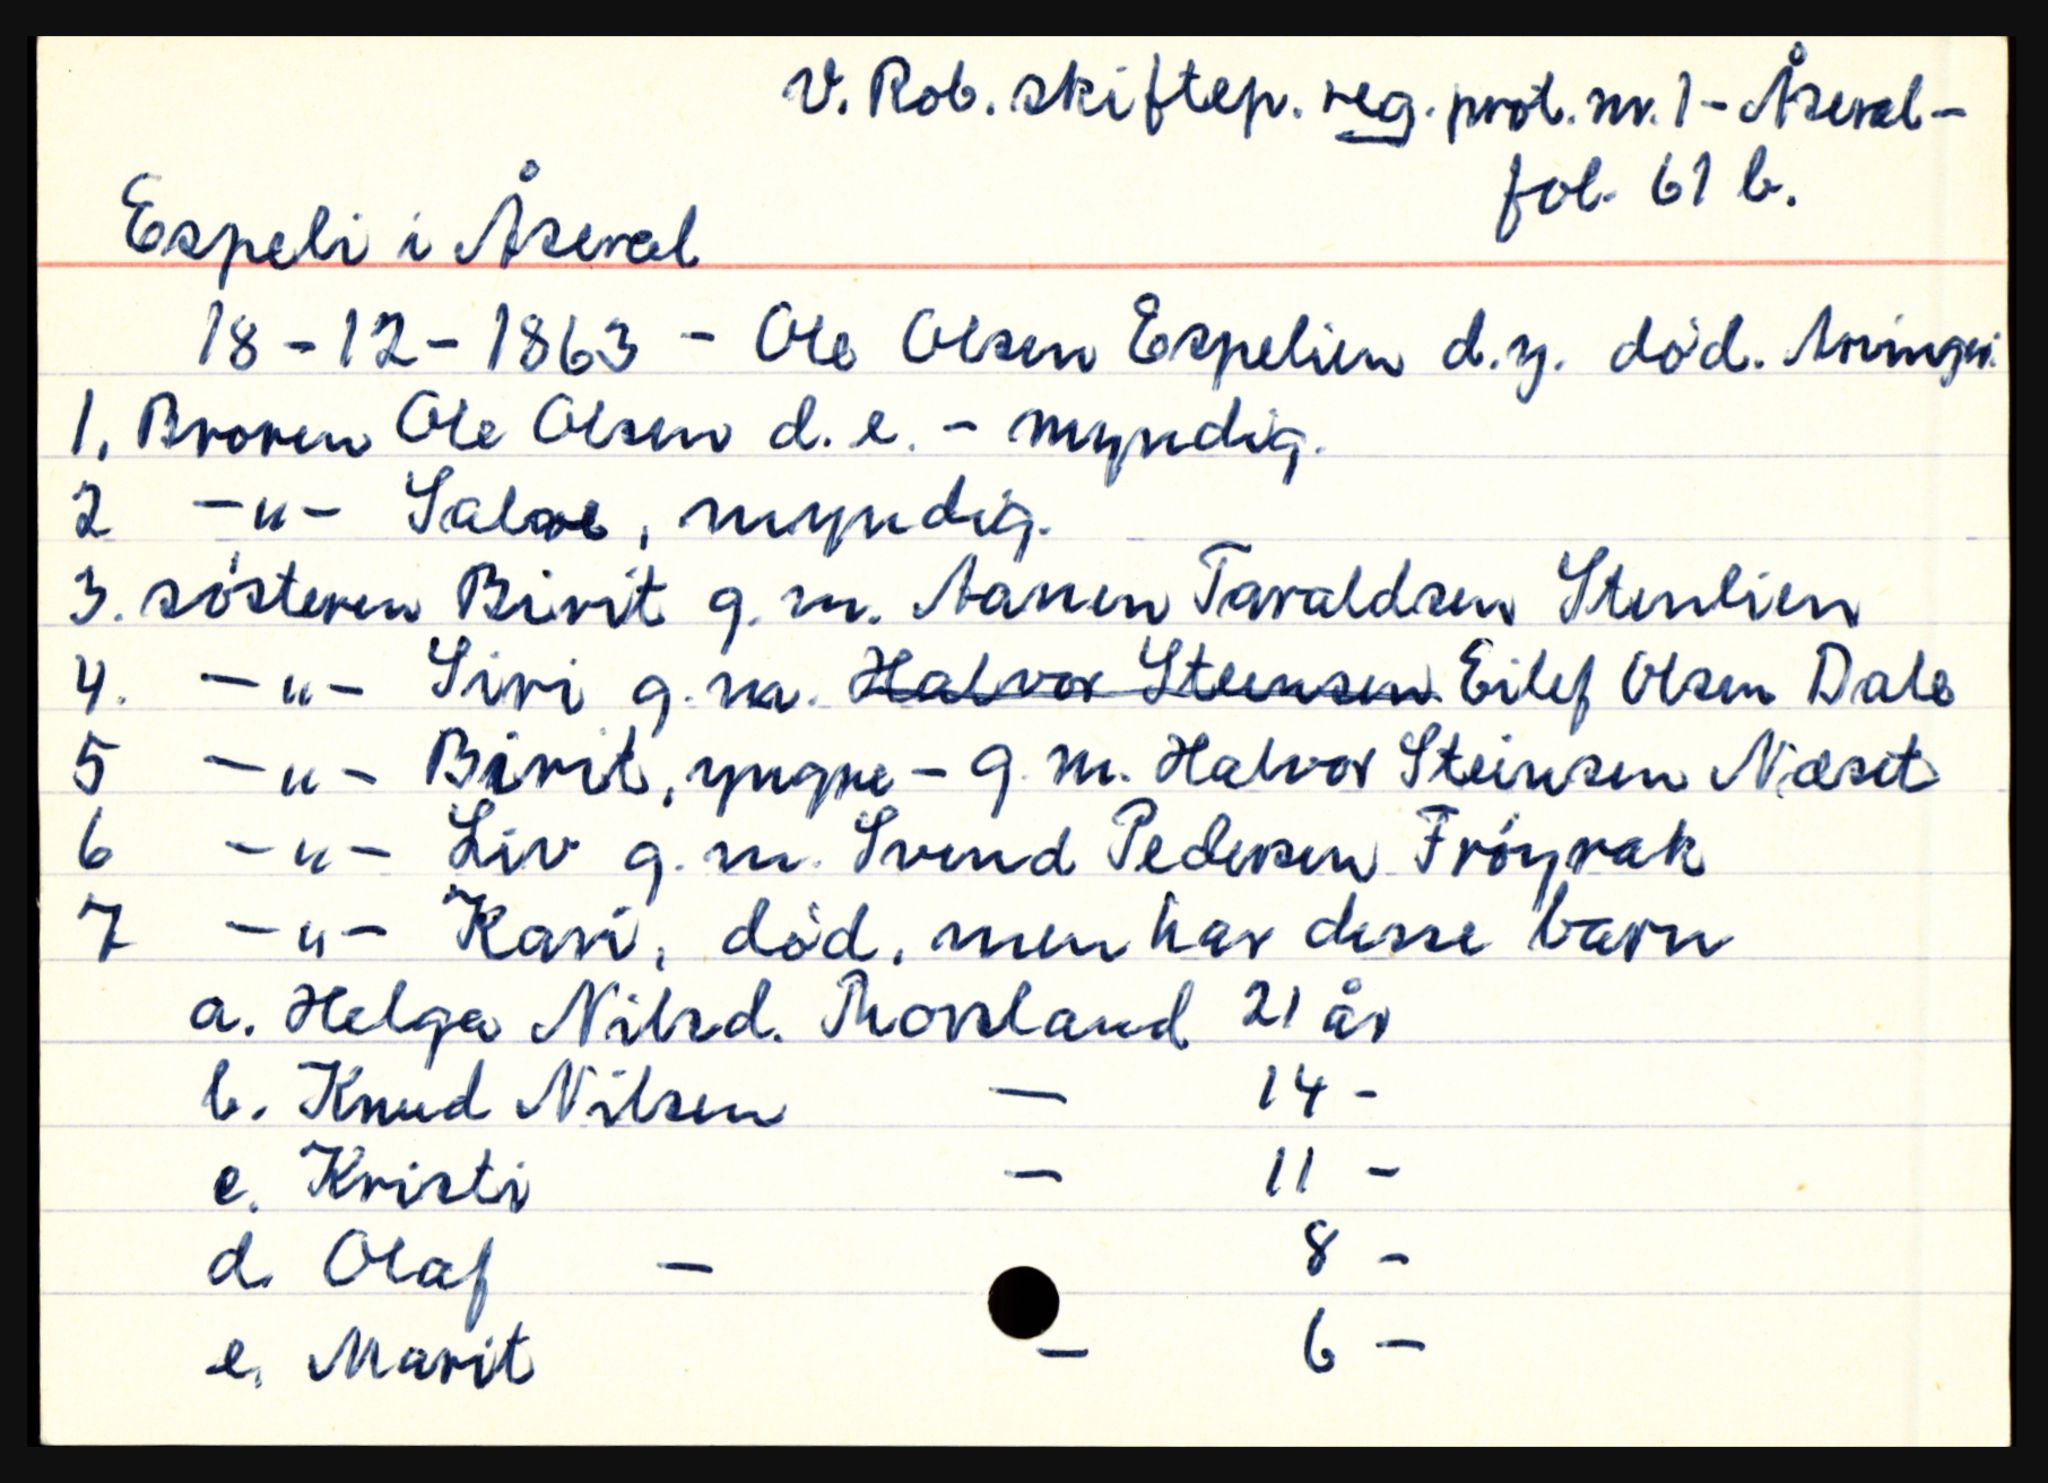 V. Rob. skiftep. reg. prot. nr. 1 - Åseral -
fol. 61 b.
Espeli i Åseral
18-12-1863 - Ole Olsen Espelien d.y. död. Arvinger:
1. Broren Ole Olsen d.e. - myndig.
2 -"- Salve, myndig.
3. sösteren Birit g.m. Aanen Taraldsen Stenlien
4. -"- Siri g.m. Halvor Steensen Eilef Olsen Dale
5 -"- Birit, yngre - g.m. Halvor Steinsen Næset
6 -"- Liv g.m. Svend Pedersen Fröyrak
7 -"- Kari, död, men har desse barn
a. Helga Nilsd. Thorsland 21 år
b. Knud Nilsen — 14 -
c. Kristi — 11 -
d. Olaf — 8 -
e. Marit — 6 -